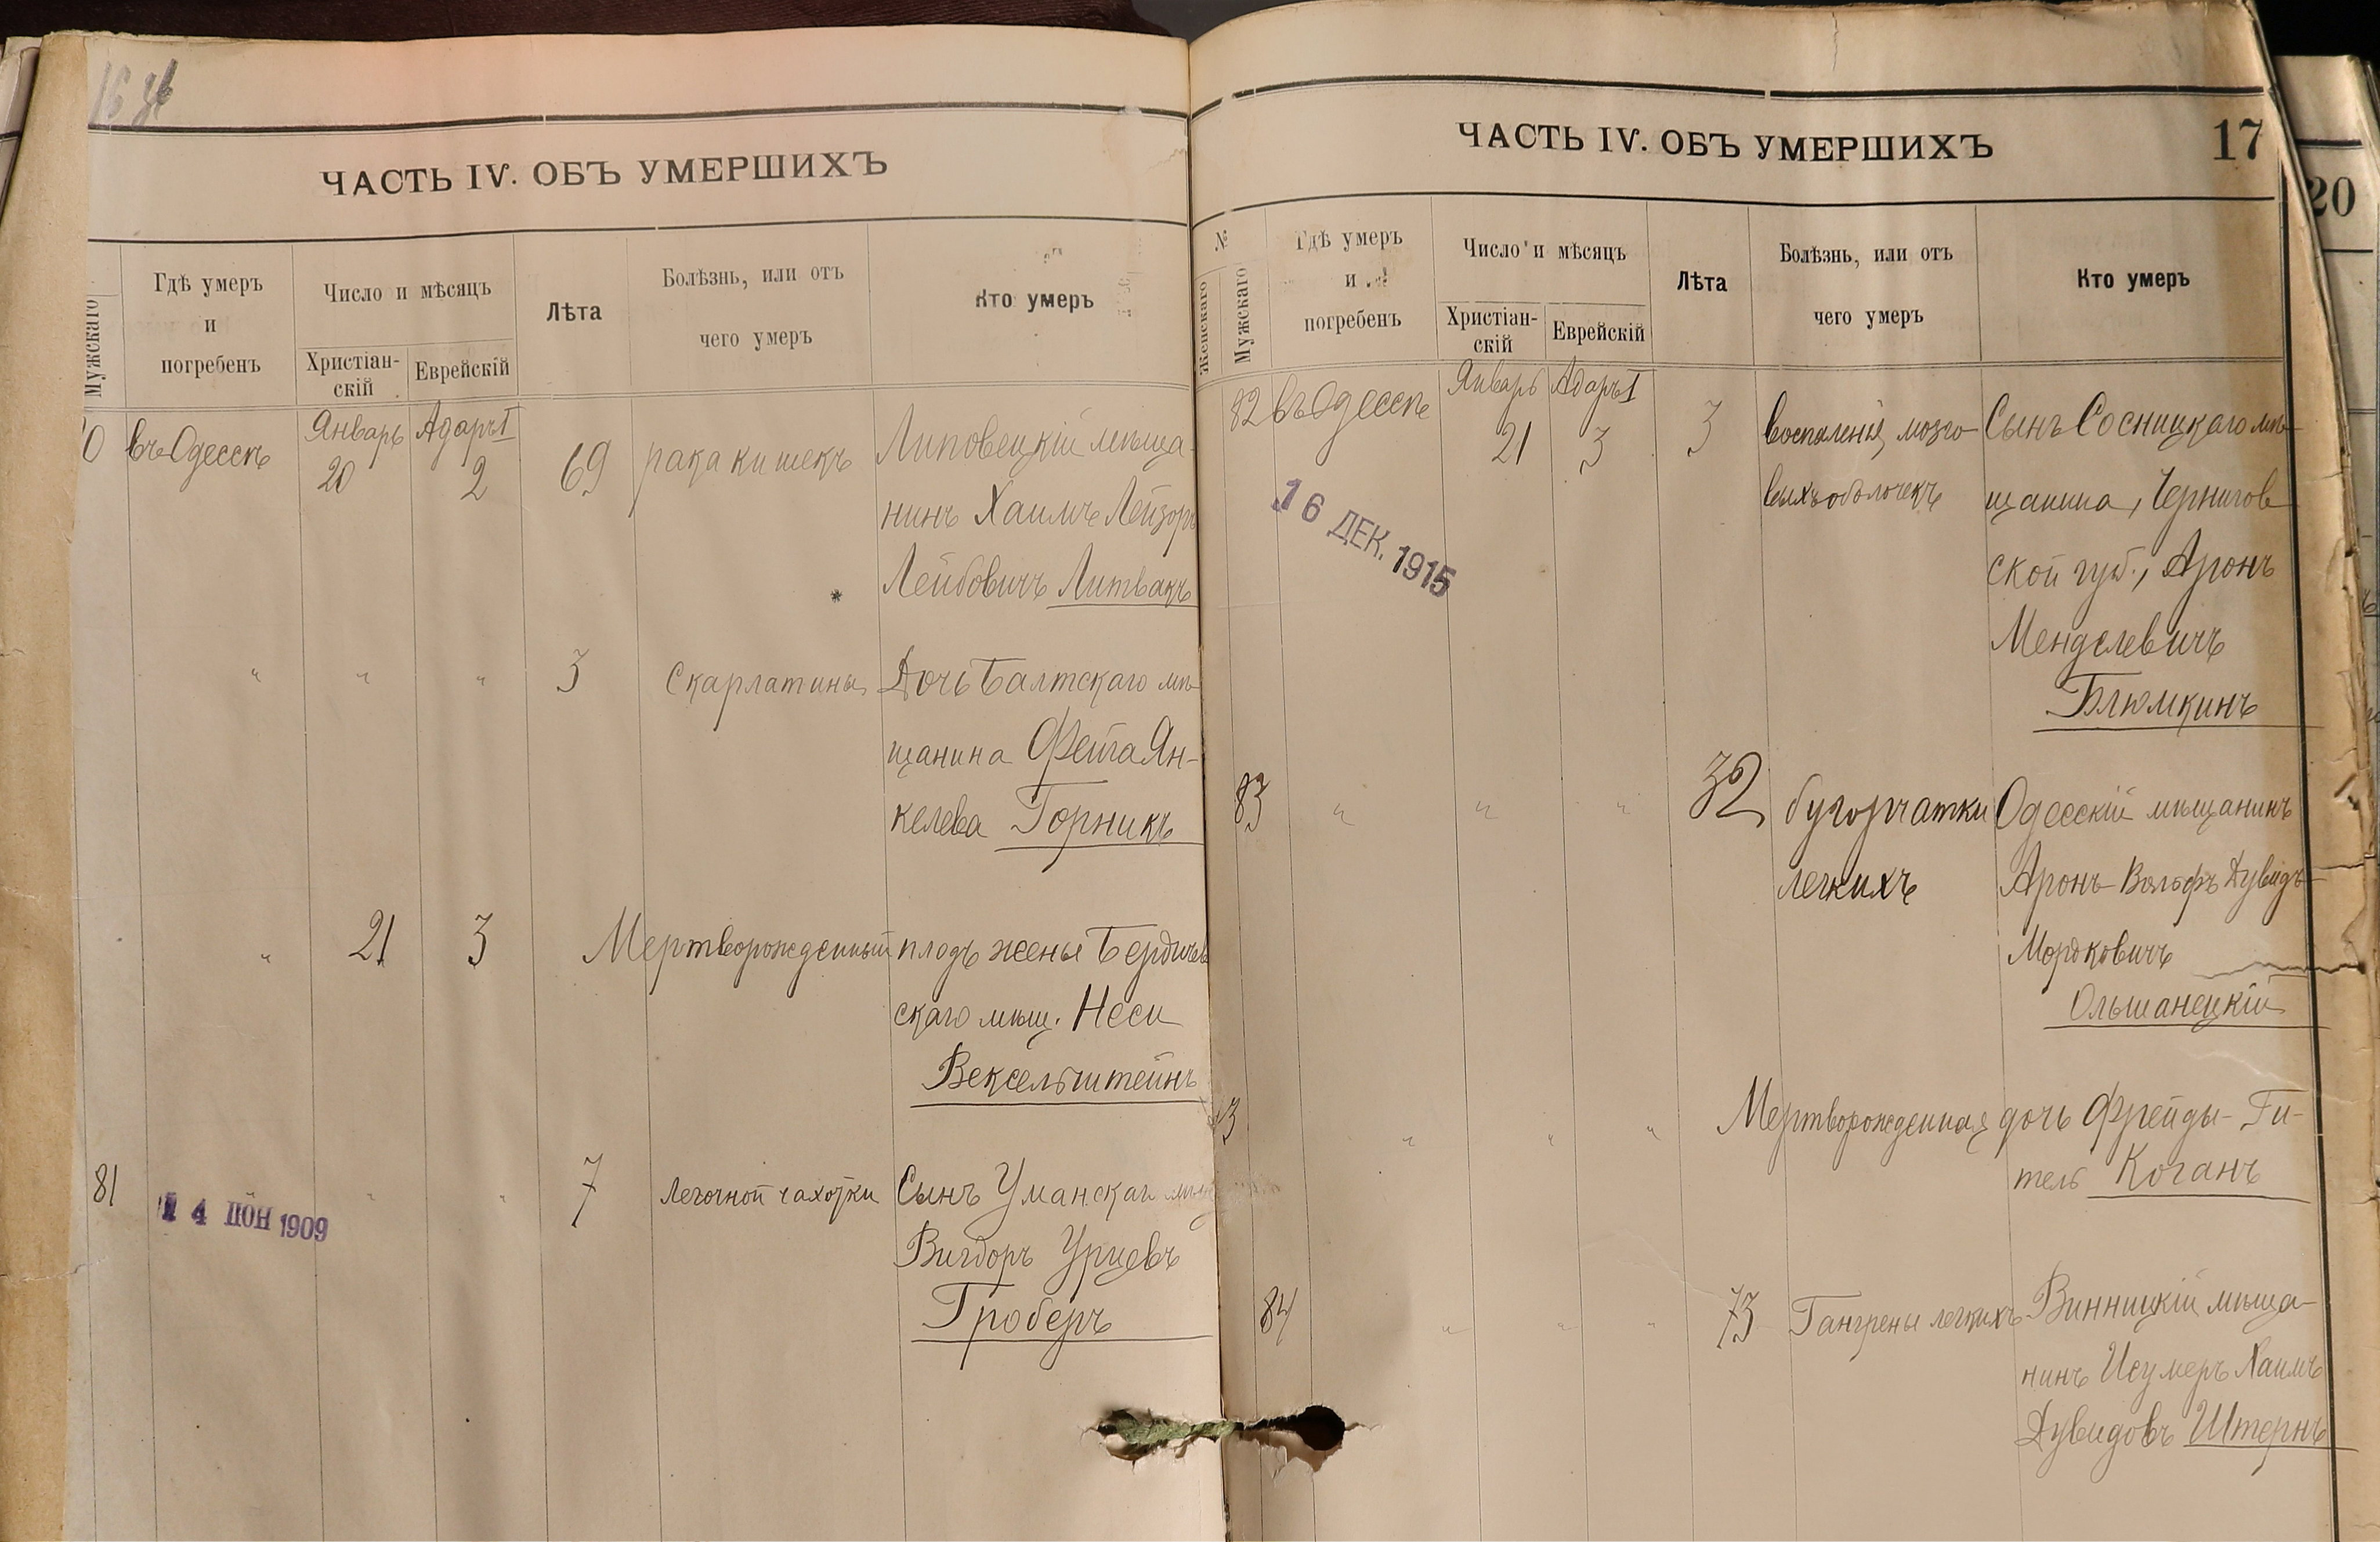 16 об
ЧАСТЬ IV. ОБЪ УМЕРШИХЪ
Мужскаго
Гдѣ умеръ
и
погребенъ
Число и мѣсяцъ
Христіан-
скій
Еврейскій
Лѣта
Болѣзнь, или отъ
чего умеръ
Кто умеръ
0 въ Одессѣ Январь 20 Адаръ I 2 69 рака кишекъ Липовецкій мѣща-
нинъ Хаимъ Лейзоръ
Лейбовичъ Литвакъ
*
" " " 3 Скарлатины Дочь Балтскаго мѣ-
щанина Фейга Ян-
келева Горникъ
" 21 3 Мертворожденный плодъ жены Бердичев
скаго мѣщ. Неси
Вексельштейнъ
81 " " 7 Легочной чахотки Сынъ Уманскаго мѣщ
14 ІЮН 1909
Вигдоръ Урцевъ
Гроберъ
ЧАСТЬ IV. ОБЪ УМЕРШИХЪ
17
№
Женскаго
Мужскаго
Гдѣ умеръ
и
погребенъ
Число и мѣсяцъ
Христіан-
скій
Еврейскій
Лѣта
Болѣзнь, или отъ
чего умеръ
Кто умеръ
82 въ Одессѣ Январь 21 Адаръ I 3 3 воспаленія мозго- Сынъ Сосницкаго мѣ-
выхъ оболочекъ щанина, Чернигов
16 ДЕК. 1915
ской губ., Аронъ
Менделевичъ
Блюмкинъ
83 " " " 32 бугорчатки Одесскій мѣщанинъ
легкихъ Аронъ-Вольфъ Дувидъ-
Мордковичъ
Ольшанецкій
3 " " " Мертворожденная дочь Фрейды-Ги-
тель Коганъ
84 " " " 73 Гангрены легкихъ Винницкій мѣща-
нинъ Исумеръ Хаимъ
Дувидовъ Штернъ
20